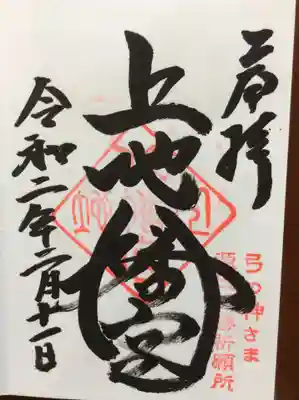 奉拝
上地八幡宮
令和二年二月十一日
弓の神さま
勝祈願所